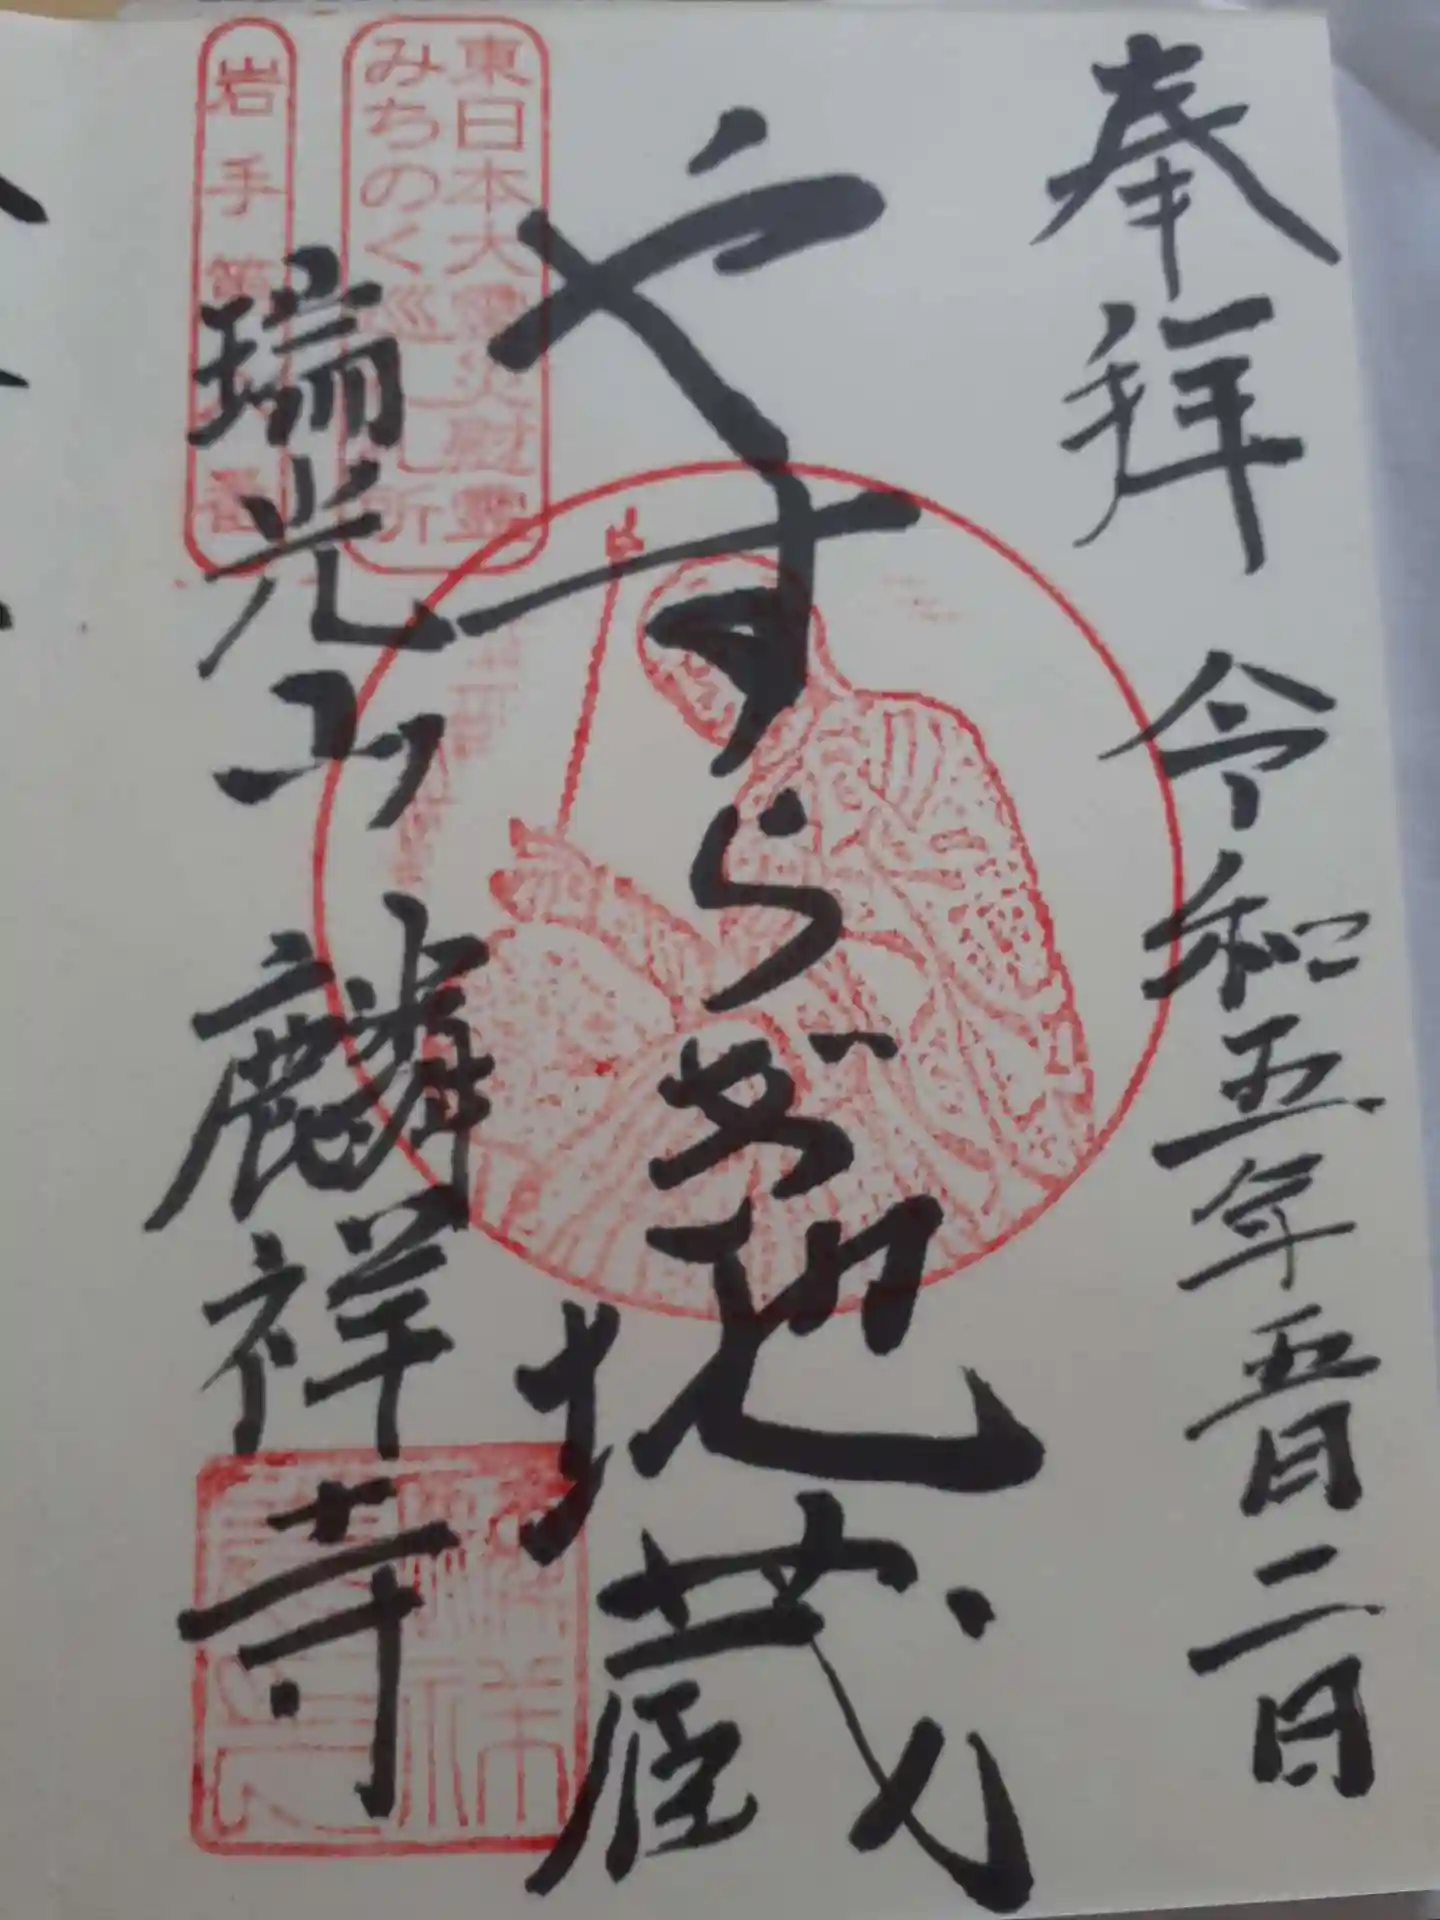 奉拝 令和五年五月二日
やすらぎ地蔵
東日本大震災慰霊
みちのく巡礼札所
瑞光山 麟祥寺
岩手第 番